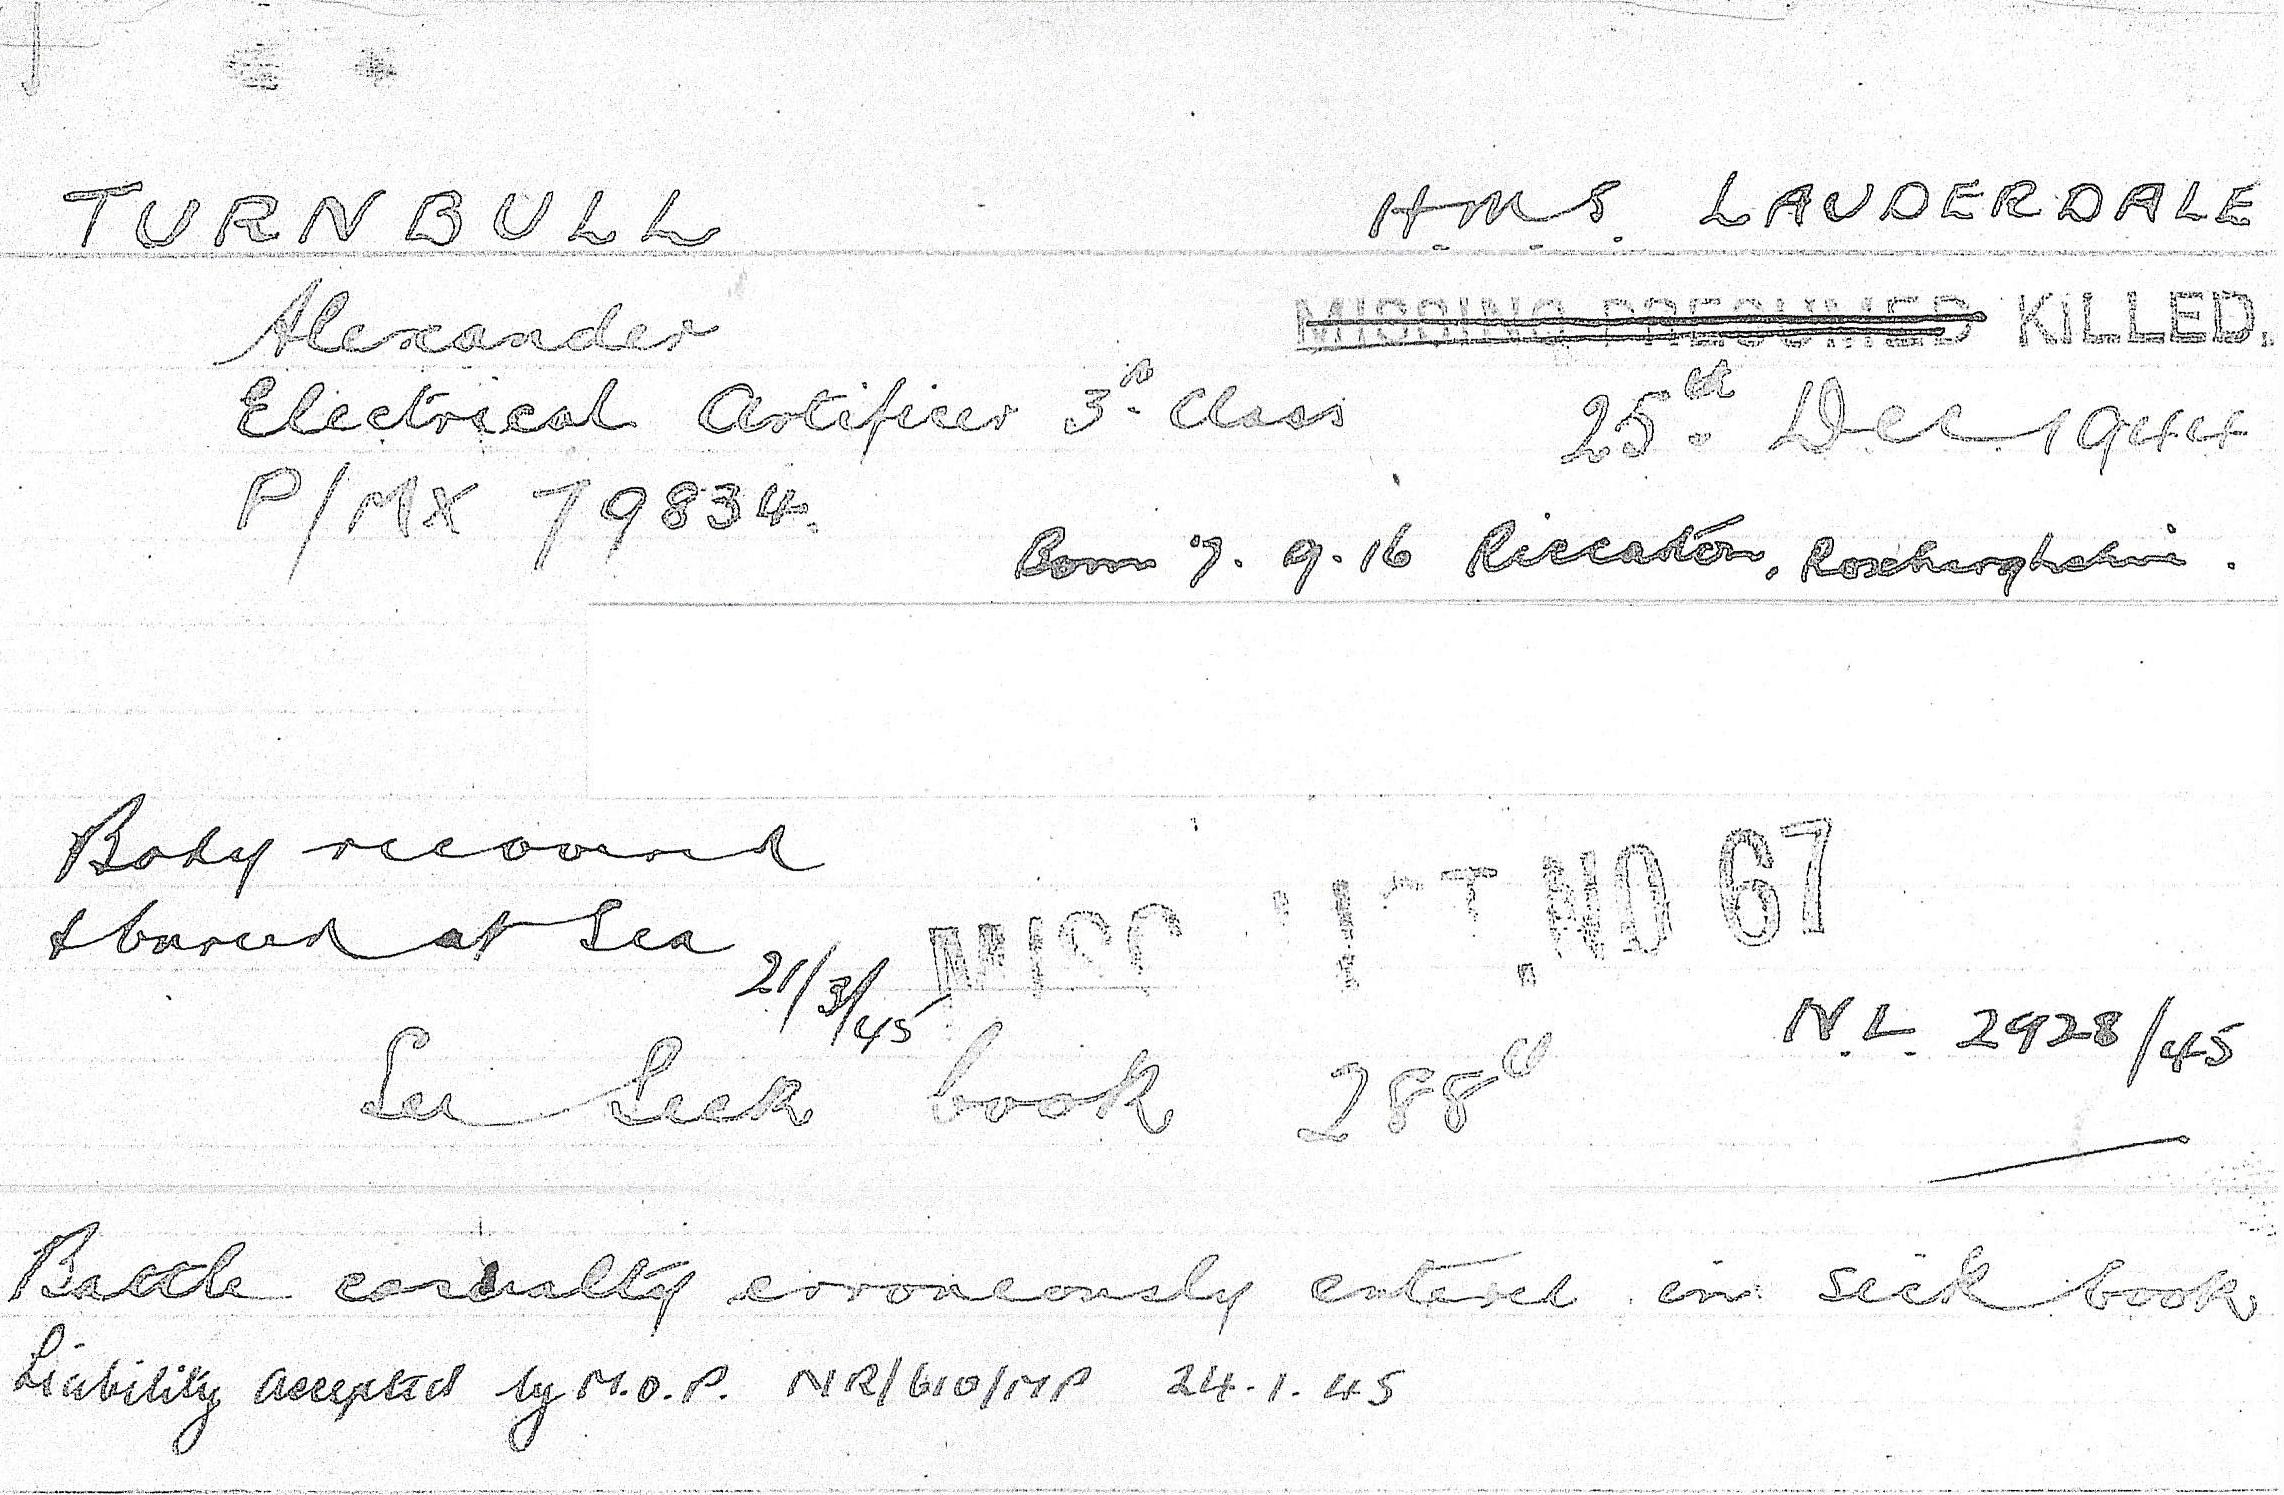 TURNBULL H.M.S. LAUDERDALE
Alexander MISSING PRESUMED KILLED.
Electrical Artificer 3rd Class 25th Dec 1944
P/MX 79834.
Born 7.9.16 Riccaton, Roxburghshire.
Body recovered
& buried at Sea
21/3/45
MISC LIST NO 67
N.L. 2928/45
See Sick book 288
Battle casualty erroneously entered in sick book
Liability accepted by M.O.P. NR/610/MP 24.1.45